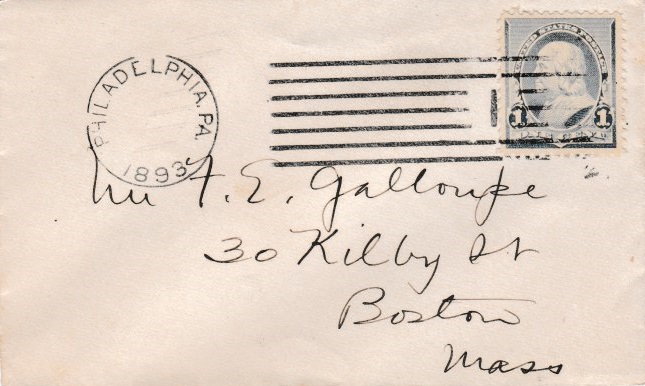 PHILADELPHIA, PA.
1893
UNITED STATES POSTAGE
1 1
ONE CENT
Mr F. E. Galloupe
30 Kilby St
Boston
Mass